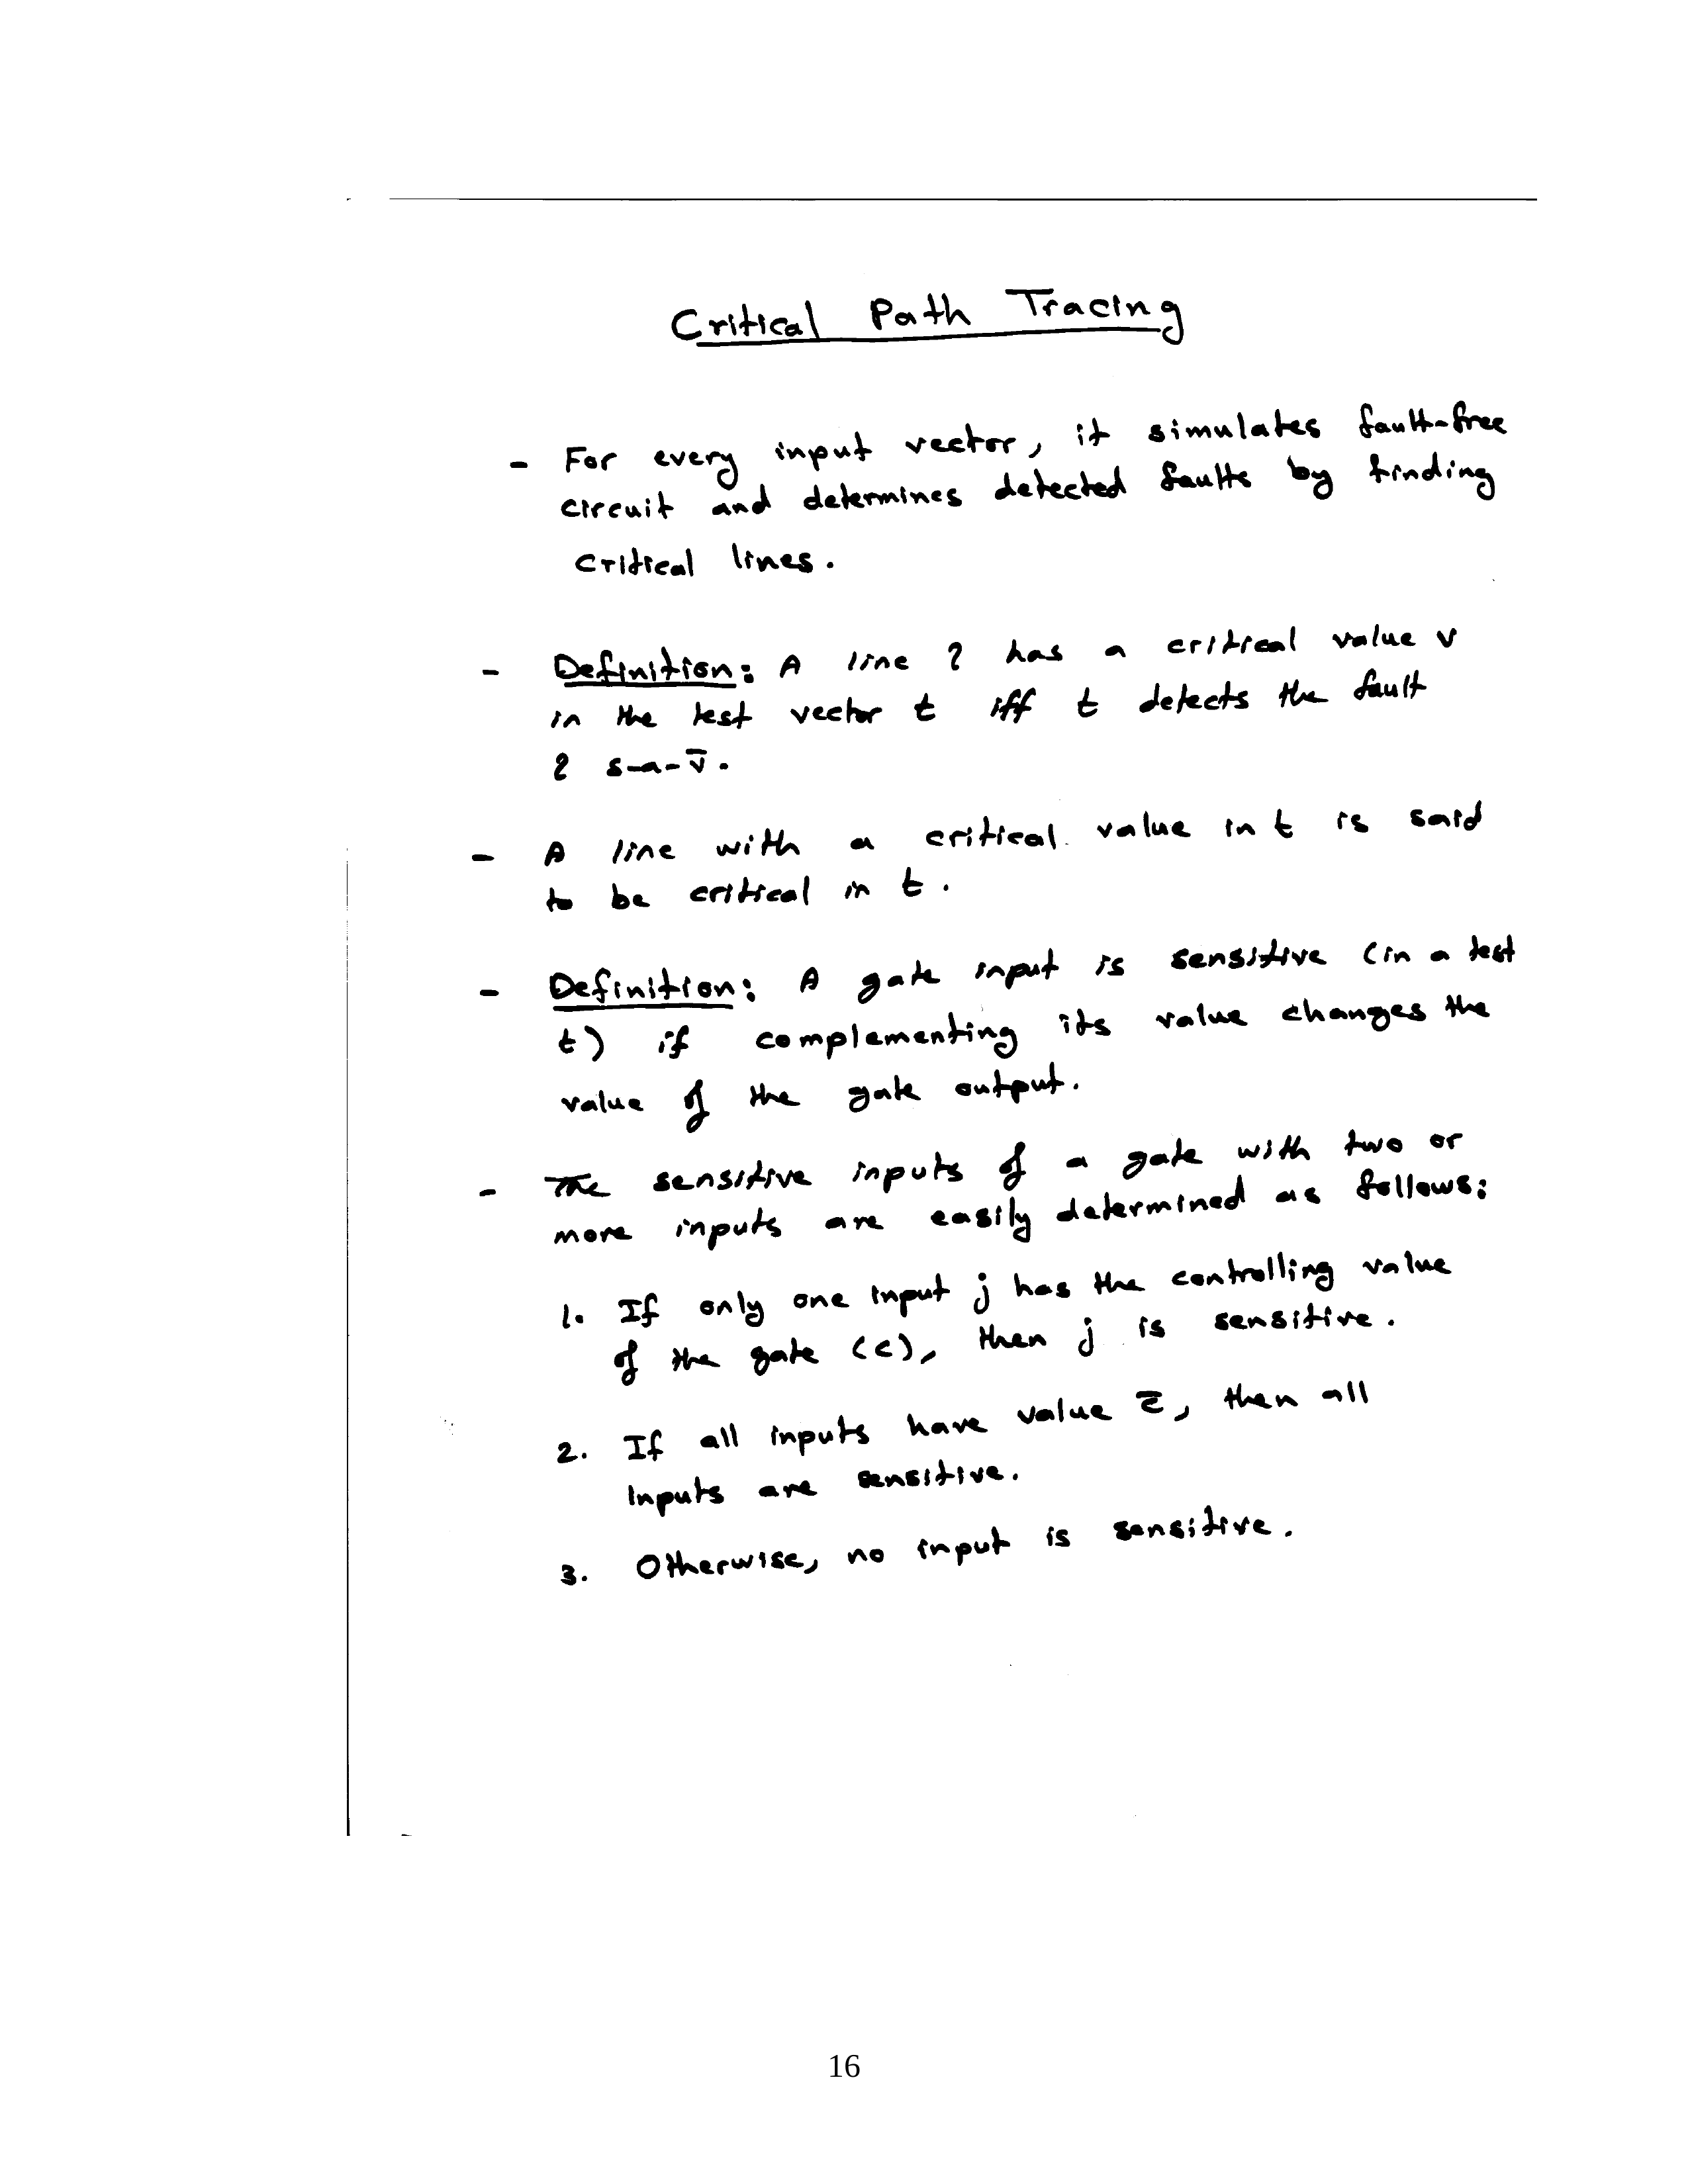 Critical Path Tracing
- For every input vector, it simulates fault-free
circuit and determines detected faults by finding
critical lines.
- Definition: A line l has a critical value v
in the test vector t iff t detects the fault
l s-a-v̅.
- A line with a critical value in t is said
to be critical in t.
- Definition: A gate input is sensitive (in a test
t) if complementing its value changes the
value of the gate output.
- The sensitive inputs of a gate with two or
more inputs are easily determined as follows:
1. If only one input j has the controlling value
of the gate (c), then j is sensitive.
2. If all inputs have value c̅, then all
inputs are sensitive.
3. Otherwise, no input is sensitive.
16